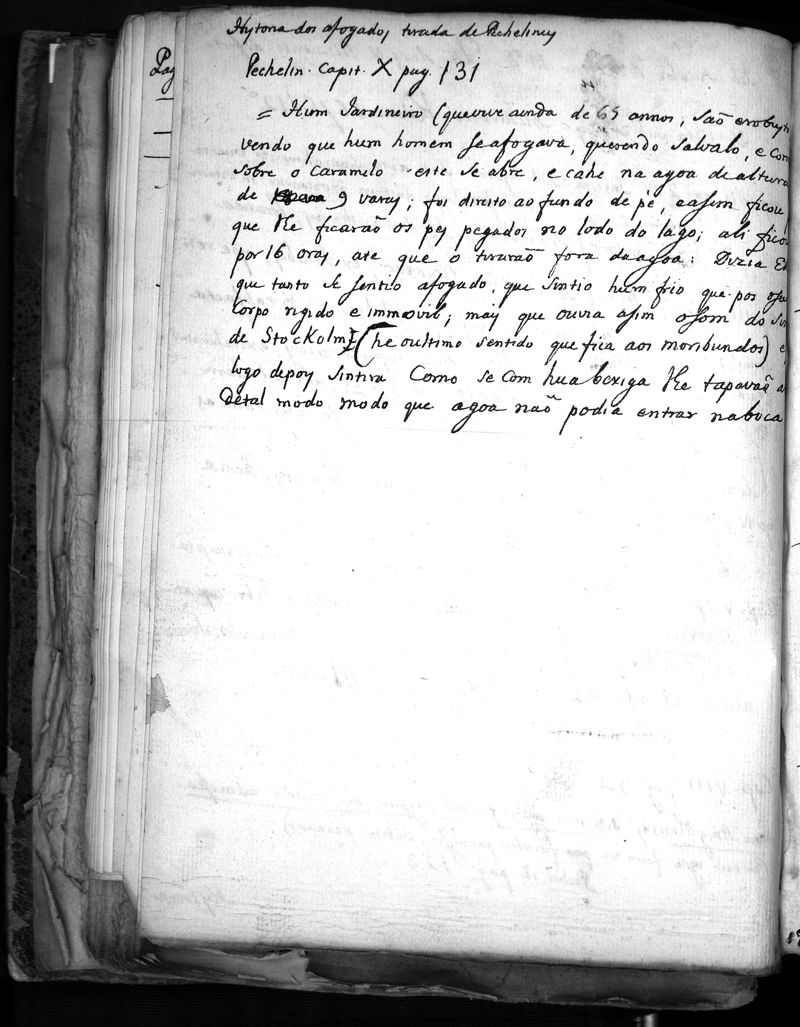 Hystoria dos afogados tirada de Pechelinus
Pechelin. Capit. X pag. 131
Pag
= Hum Jardineiro (que vive ainda de 65 annos, saõ e robusto
vendo que hum homem se afogava, querendo salvalo, e
sobre o Caramelo este se abre, e cahe na agoa de altura
de 9 varas; foi direito ao fundo de pé, easim ficou
que lhe ficaraõ os pes pegados no lodo do lago; ali ficou
por 16 oras, ate que o tiraraõ fora da agoa: Dizia
que tanto se sentio afogado, que sintio hum frio que pos o seu
Corpo rigido e immovil; mas que ouvia asim o som do
de Stockolm (he o ultimo sentido que fica aos moribundos)
logo depoy sintira Como se com hua bexiga lhe tapavaõ a
detal modo modo que agoa naõ podia entrar na boca